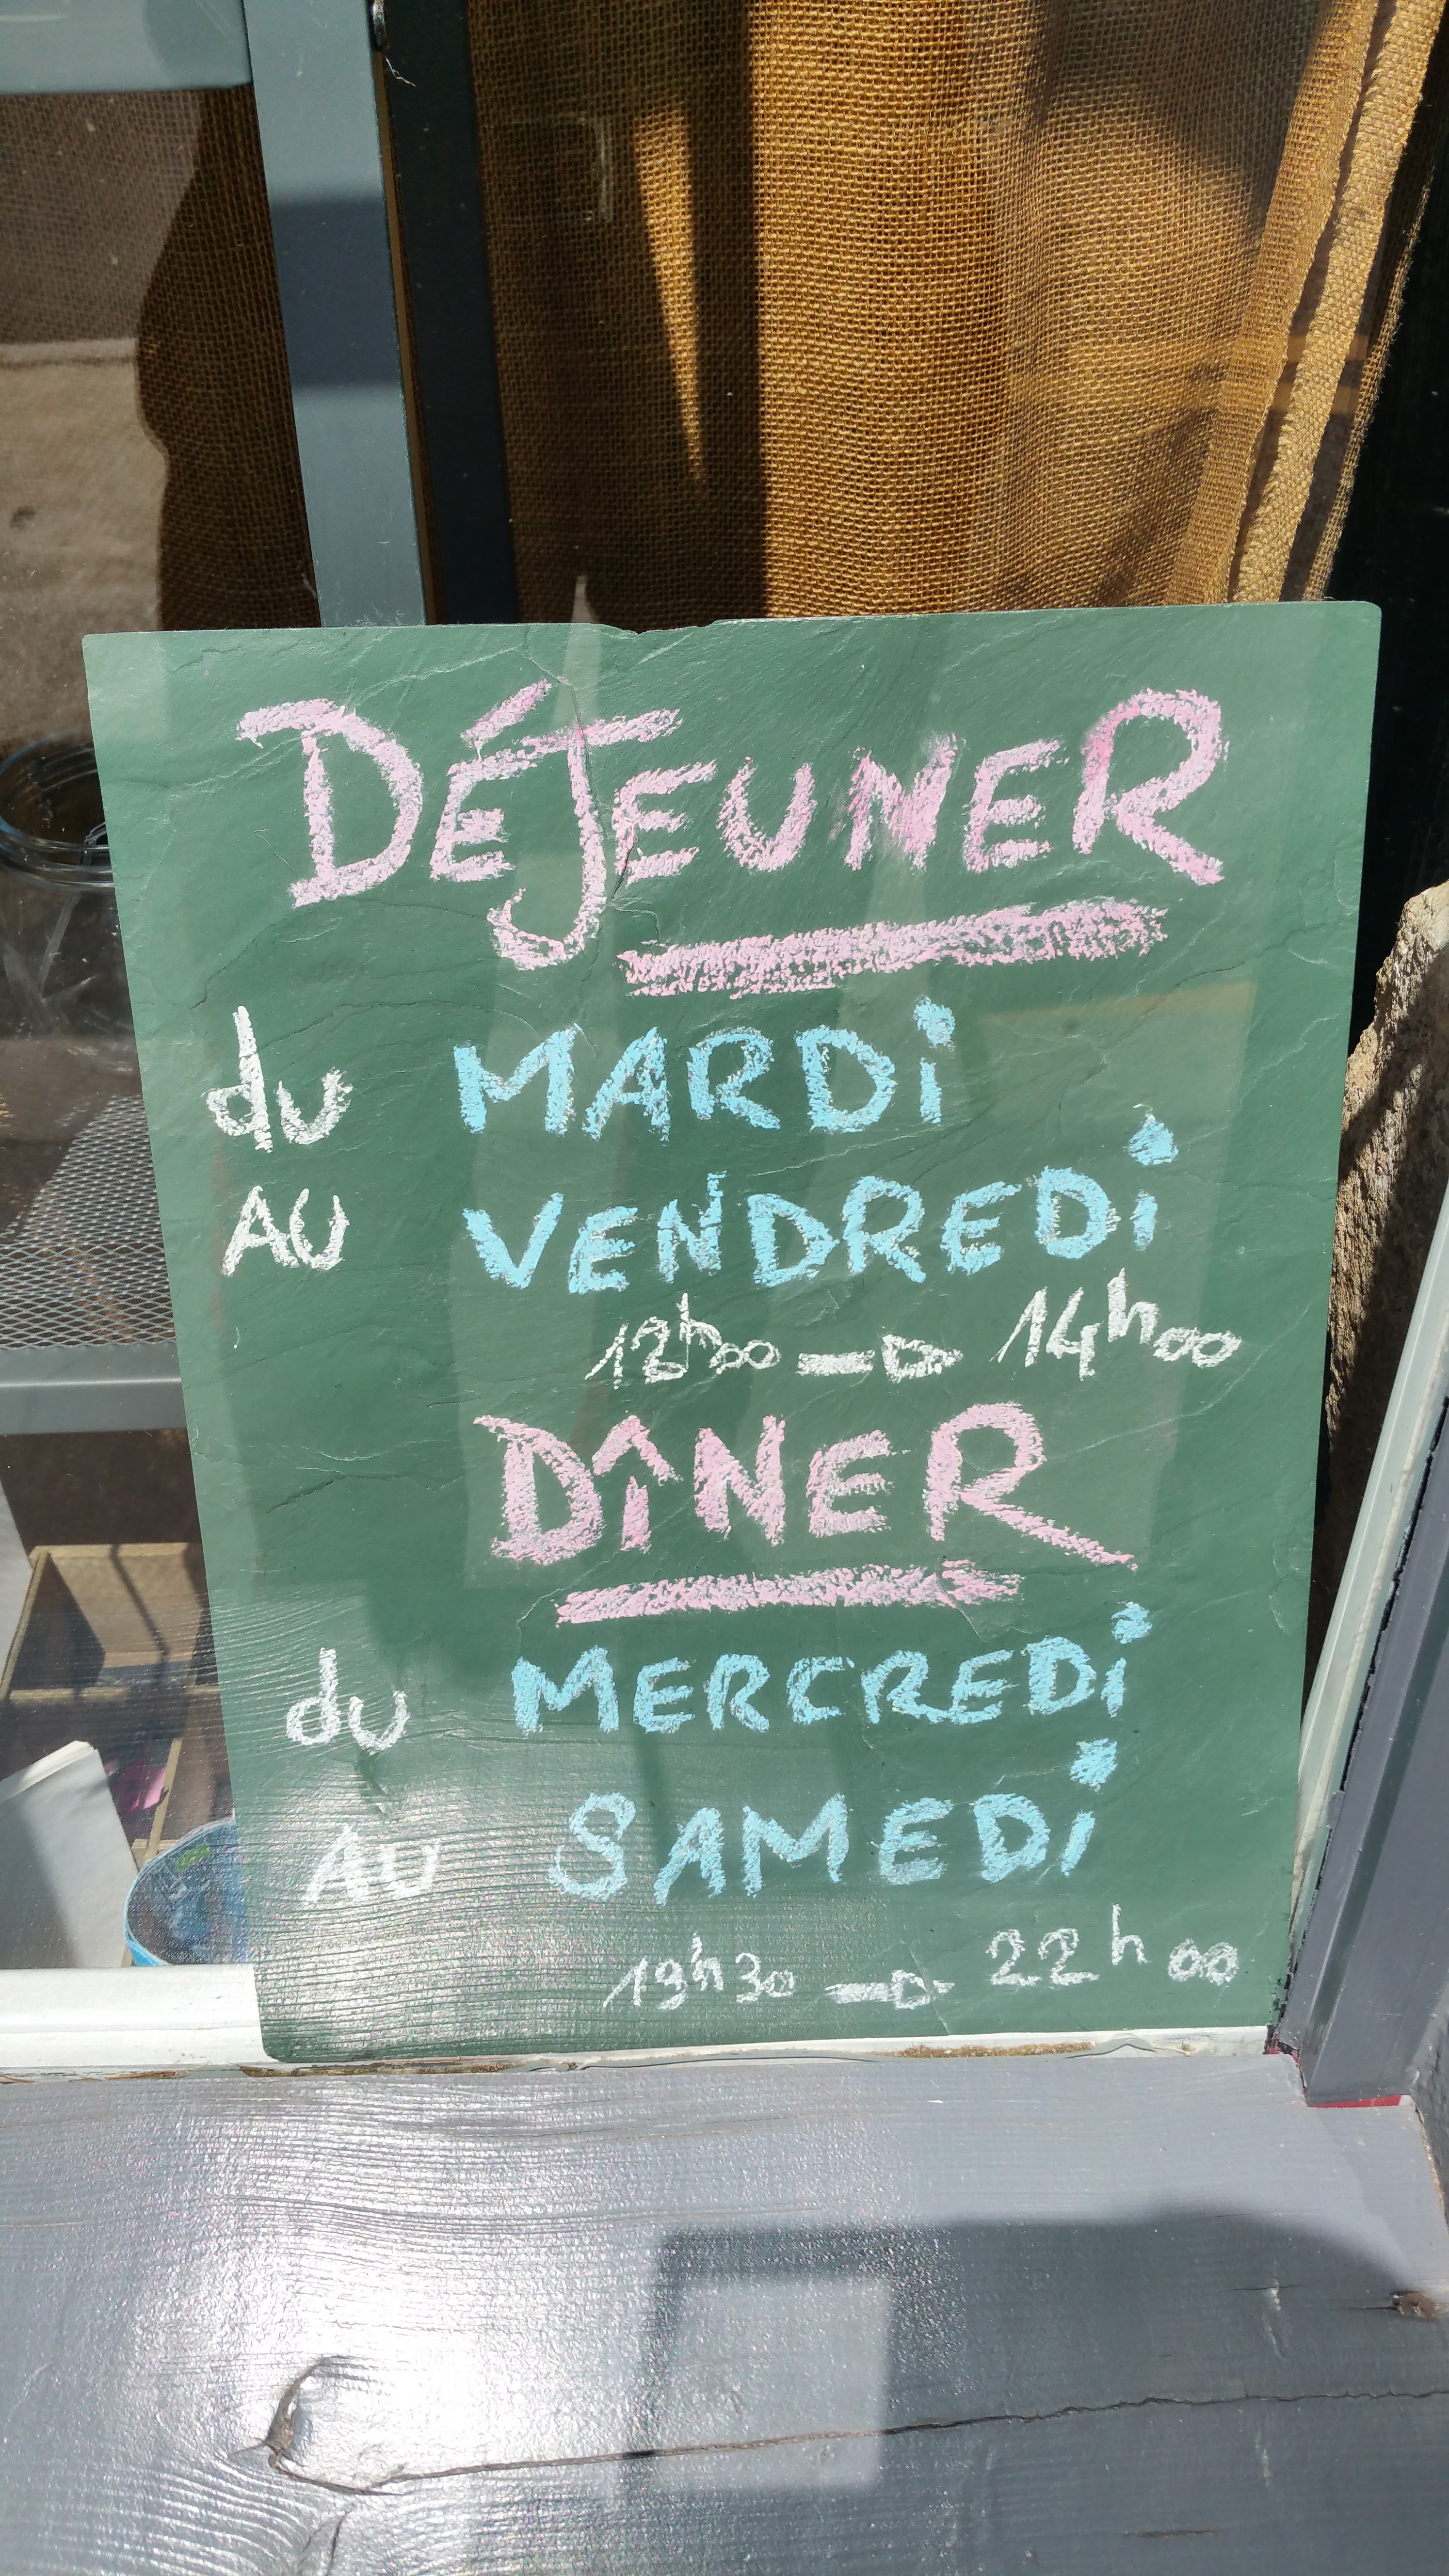 DÉJEUNER
du MARDi
AU VENDREDi
12h00 → 14h00
DÎNER
du MERCREDi
AU SAMEDi
19h30 → 22h00